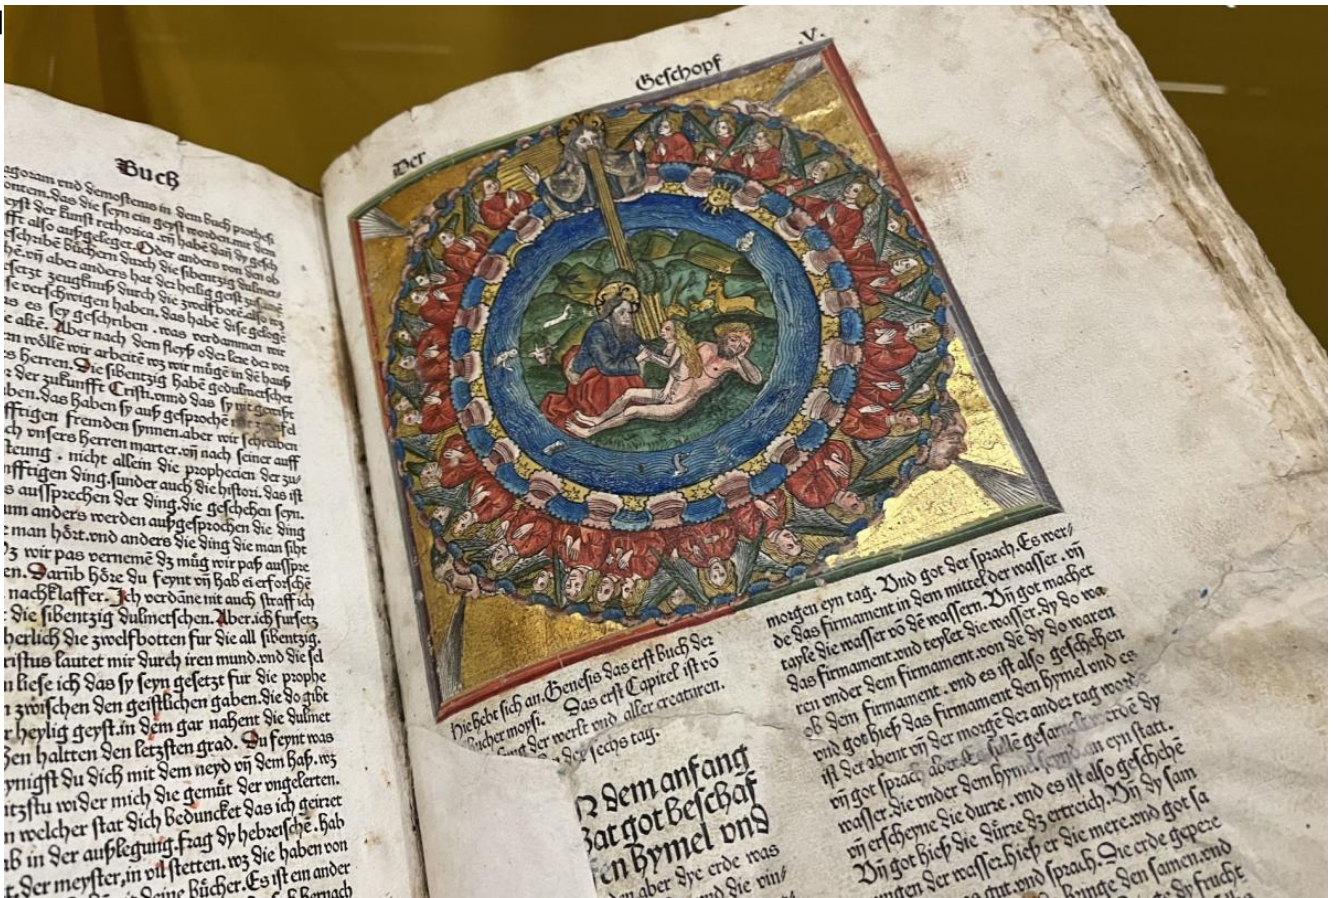 Buch
agoram vnd demostenis in dem buch prothesi
ontem. das die seyn ein geyst worden. mit dem
eyst der kunst rethorica. vñ habē dañ dy gesch
fft also außgeleget. Oder anders von den ob
eschribē büchern durch die sibentzig dulmets
he. vñ aber anders hat der heilig geist zusamē
setzt zeugknuß durch die zwelfbotē. also wz
se verschwigen haben. das habē dise geloge
as es sey geschriben. was verdammen wir
e altē. Aber nach dem fleyß oder lere der vor
en wöllē wir arbeitē wz wir mügē in dē hauß
s herren. Die sibentzig habē gedulmetschet
r der zukunfft Cristi. vnnd das sy nit gewißt
ben. das haben sy auß gesprochē mit
fftigen fremden synnen. aber wir schreiben
ch vnsers herren marter. vñ nach seiner auff
teung. nicht allein die prophecien der zu⸗
nfftigen ding. sunder auch die histori. das ist
s aussprechen der ding. die geschehen seyn.
um anders werden außgesprochen die ding
e man hört. vnd anders die ding die man siht
z wir pas vernemē dz müg wir paß ausspre
en. Darüb höre du feynt vñ hab ei erforschē
nachklaffer. Ich verdāne nit auch straff ich
t die sibentzig dulmetschen. Aber. ich fursetz
herlich die zwelfbotten fur die all sibentzig.
ristus lautet mir durch iren mund. vnd die sel
n liese ich das sy seyn gesetzt fur die prophe
n zwischen den geistlichen gaben. die do gibt
r heylig geyst. in dem gar nahent die dulmet
hen haltten den letzsten grad. Du feynt was
ynigst du dich mit dem neyd vñ dem haß. wz
itzstu wider mich die gemüt der vngelerten.
n welcher stat dich beduncket das ich geirret
ab in der außlegung. frag dy hebreischē. hab
t. der meyster, in vil stetten. wz die haben von
deine bücher. Es ist ein ander
Der Geschopf .V.
Hie hebt sich an. Genesis das erst buch der
bucher moysi. Das erst Capitel ist vō
der werlt vnd aller creaturen.
der sechs tag.
dem anfang
hat got beschaf
en hymel vnd
aber dye erde was
vnd die vin⸗
morgen eyn tag. Vnd got der sprach. Es wer⸗
de das firmament in dem mittel der wasser. vñ
tayle die wasser vō dē wassern. Vñ got machet
das firmament. vnd teylet die wasser. dy do wa
ren vnder dem firmament. von dē dy do waren
ob dem firmament. vnd es ist also geschehen
vnd got hieß das firmament den hymel vnd es
ist der abent vñ der morgē der ander tag worde
vñ got sprach aber. Es sullē gesamelt werdē dy
wasser. die vnder dem hymel seynd an eyn statt.
vñ erscheyne die durre. vnd es ist also geschehē
Vñ got hieß die dürre dz ertreich. Vñ dy sam
ungen der wasser. hieß er die mere. vnd got sa
gut. vnd sprach. Die erde gepere
bringe den samen. vnd
dy frucht